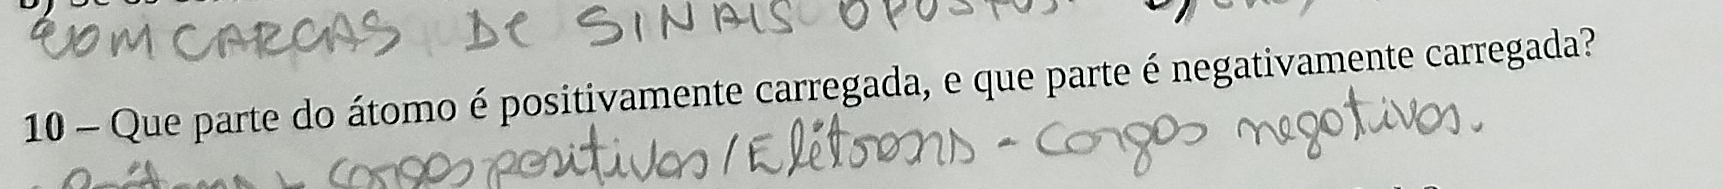 COM CARGAS DE SINAIS OPOSTOS.
10 – Que parte do átomo é positivamente carregada, e que parte é negativamente carregada?
cargas positivas / Elétrons - cargas negativas.